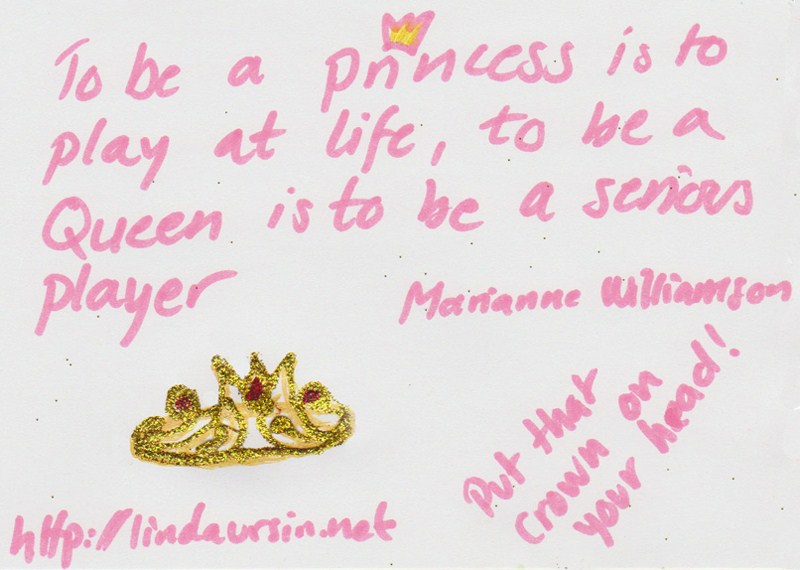 To be a princess is to
play at life, to be a
Queen is to be a serious
player
Marianne Williamson
Put that
crown on
your head!
http://lindaursin.net